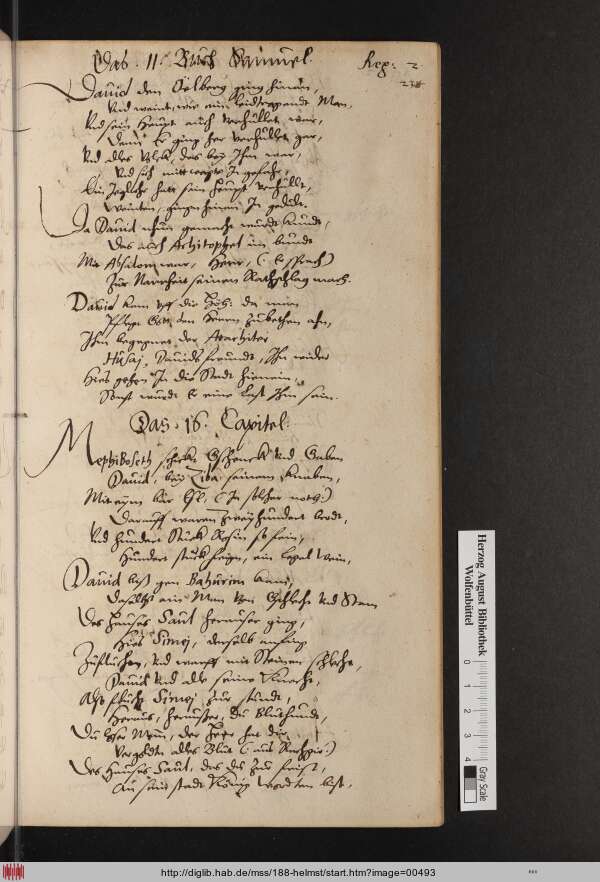 Das . II . Buch Samuel.
Reg: 2
David den Oelberg ging hinan,
Und weint, wie ein leidtragendt Man,
Und sein Haupt auch verhüllet war,
Denn Er ging her verhüllet gar,
Und alles Volck, das bey Ihm war,
Und sich mitt In gefahr,
Ein Jeglicher hatt sein Haupt verhüllt,
Weinten, gingen hinan In gedult.
Da David nhun wurdt kundt,
Das auch Achitophel im bundt
Mit Absalom war, Herr, (: Er sprach)
Zur Narrheit seinen Rathschlag mach.
David kam uff die Höh: da man
Pflegt Gott den Herrn Zubethen ahn,
Ihm begegnet der Arachiter
Husaj, Davids freundt, Ihn wider
Hies gehen In die Stadt hienein,
Sonst wurdt Er eine Last Ihm sein.
Das . 16 . Capitel.
Mephiboseth schickt Geschenck und Gaben
David, bey Ziba seinem Knaben,
Mit eym bar Esl. (: In solcher noth:)
Darauff waren Zweyhundert brodt,
Und hundert Stuck Rosin so fein,
Hundert stuck feigen, ein Legel Wein,
David biß gen Bahurim kam,
Daselbst ein Man vom Geschlecht und Stam
Des Hauses Saul herauser ging,
Hies Simej, derselb anfing
Zufluchen, und warff mit Steinen schlecht,
David und alle seine Knecht,
Also flucht Simej zur stundt,
Heraus, heraußer, du Bluthundt,
Du loser Man, der Herr hat dir
Vergolten alles Blut (:
Des Hauses Saul, das du Zur frist,
An seine stadt König worden bist,
Herzog August Bibliothek
Wolfenbüttel
0 1 2 3 4
Gray Scale
http://diglib.hab.de/mss/188-helmst/start.htm?image=00493